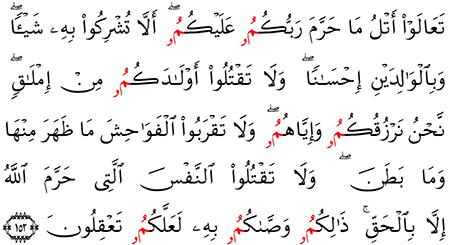 تَعَالَوْاْ أَتْلُ مَا حَرَّمَ رَبُّكُمُۥ عَلَيْكُمُۥۖ أَلَّا تُشْرِكُواْ بِهِۦ شَيْـًٔاۖ
وَبِالْوَٰلِدَيْنِ إِحْسَٰنٗاۖ وَلَا تَقْتُلُوٓاْ أَوْلَٰدَكُمُۥ مِنْ إِمْلَٰقٖۖ
نَّحْنُ نَرْزُقُكُمُۥ وَإِيَّاهُمُۥۖ وَلَا تَقْرَبُواْ اُلْفَوَٰحِشَ مَا ظَهَرَ مِنْهَا
وَمَا بَطَنَۖ وَلَا تَقْتُلُواْ اُلنَّفْسَ اَلَّتِي حَرَّمَ اَللَّهُ
إِلَّا بِالْحَقِّۚ ذَٰلِكُمُۥ وَصَّىٰكُمُۥ بِهِۦ لَعَلَّكُمُۥ تَعْقِلُونَ ١٥٢